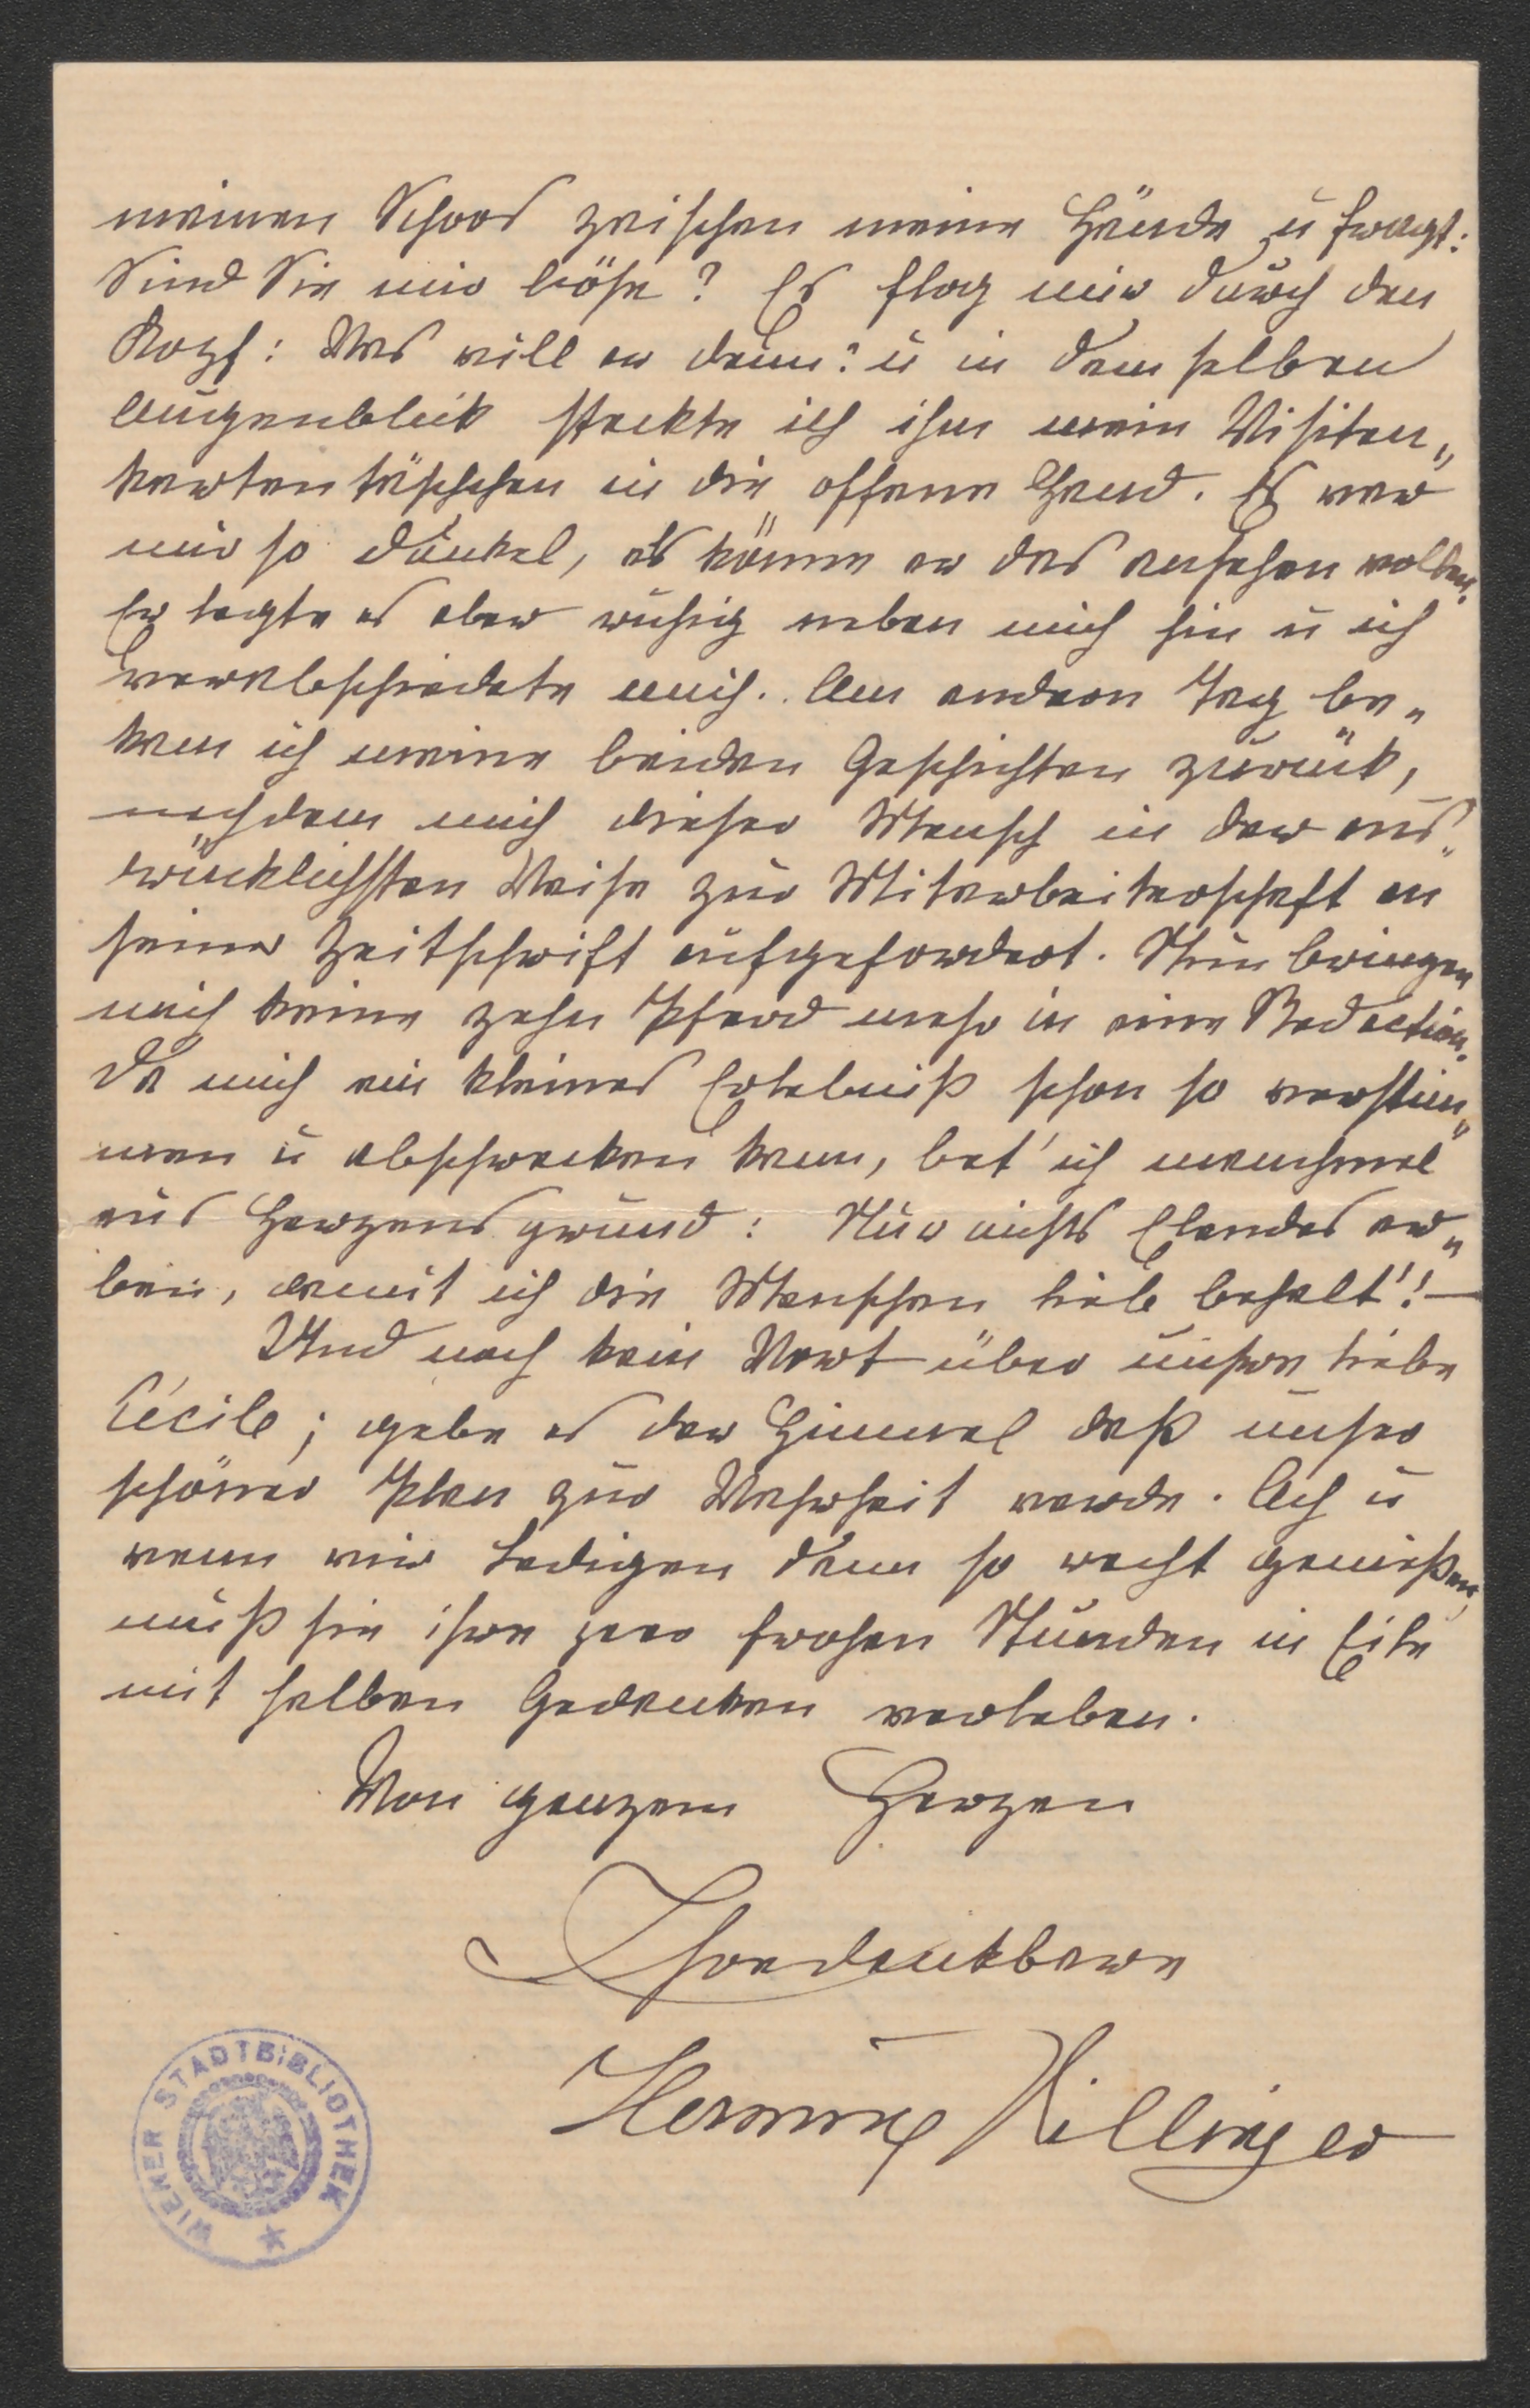 meinen Schoos zwischen meine Hände u fragt:
Sind Sie mir böse? Es flog mir durch den
Kopf: Was will er denn? u in dem selben
Augenblick steckte ich ihm mein Visiten„
kartentäschchen in die offene Hand. Es war
mir so dunkel, als könne er das ansehen wollen.
Er legte es aber ruhig neben mich hin u ich
verabschiedete mich. Am andern Tag be„
kam ich meine beiden Geschichten zurück,
nachdem mich dieser Mensch in der aus„
drücklichsten Weise zur Mitarbeiterschaft an
seiner Zeitschrift aufgefordert. Nun bringen
mich keine zehn Pferd mehr in eine Redaction.
Da mich ein kleines Erlebniß schon so verstim„
men u abschrecken kann, bet' ich manchmal
aus Herzensgrund: Nur nichts Elendes er„
leben, damit ich die Menschen lieb behalt'! –
Und noch kein Wort über unsere liebe
Cécile; gebe es der Himmel daß unser
schöner Plan zur Wahrheit werde. Ach u
wenn wir Ledigen dann so recht genießen,
muß sie ihre paar frohen Stunden in Eile
mit halben Gedanken verleben.
Von ganzem Herzen
Ihre dankbare
Hermine Villinger
WIENER STADTBIBLIOTHEK